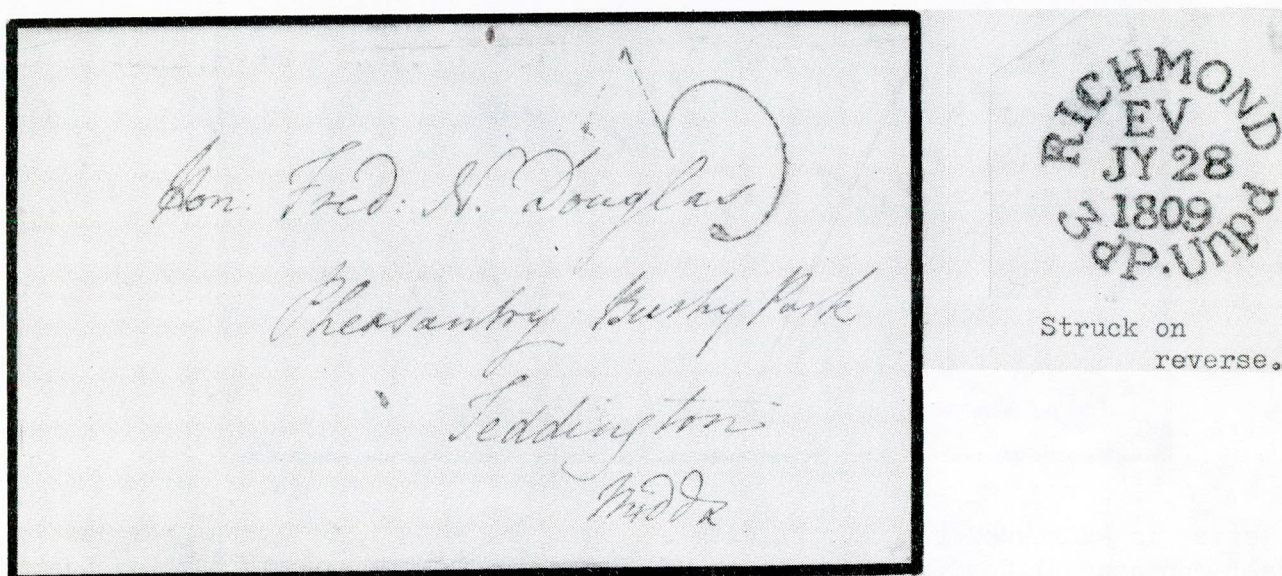 Hon: Fred: N. Douglas
Pheasantry Bushy Park
Teddington
Middx
RICHMOND
EV
JY 28
1809
3dP. Unpd
Struck on
reverse.